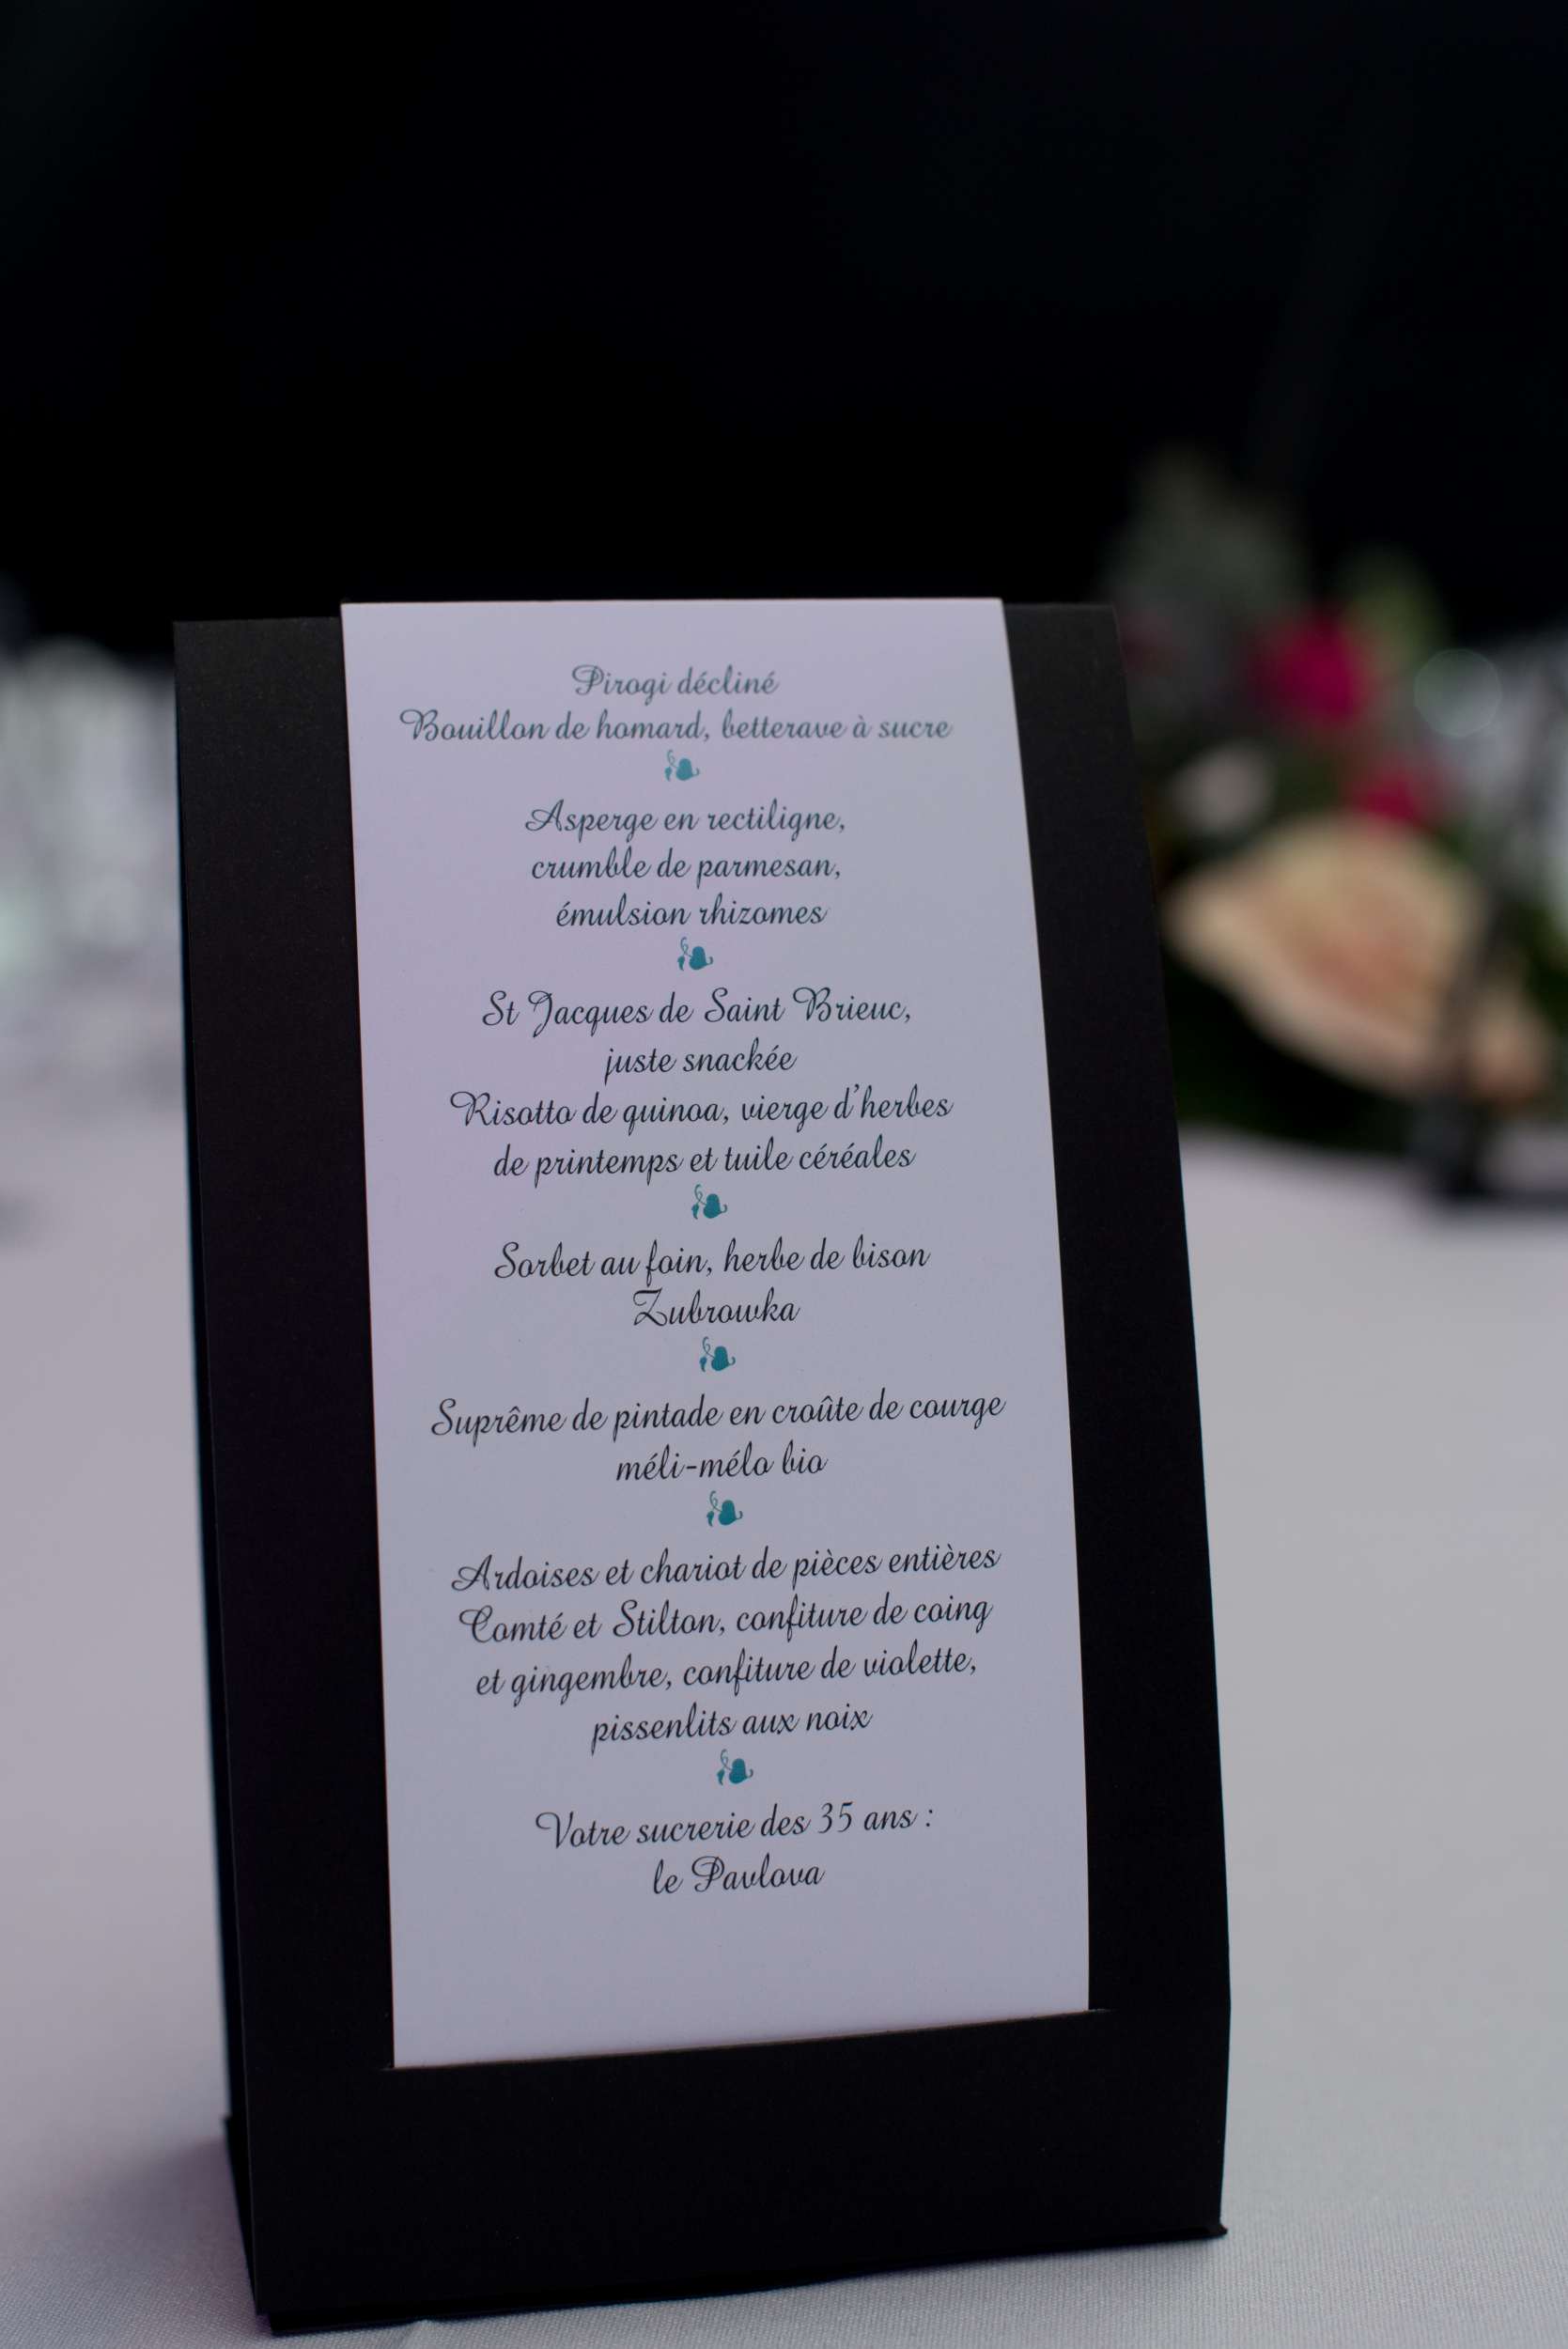 Pirogi décliné
Bouillon de homard, betterave à sucre
Asperge en rectiligne,
crumble de parmesan,
émulsion rhizomes
St Jacques de Saint Brieuc,
juste snackée
Risotto de quinoa, vierge d'herbes
de printemps et tuile céréales
Sorbet au foin, herbe de bison
Zubrowka
Suprême de pintade en croûte de courge
méli-mélo bio
Ardoises et chariot de pièces entières
Comté et Stilton, confiture de coing
et gingembre, confiture de violette,
pissenlits aux noix
Votre sucrerie des 35 ans :
le Pavlova